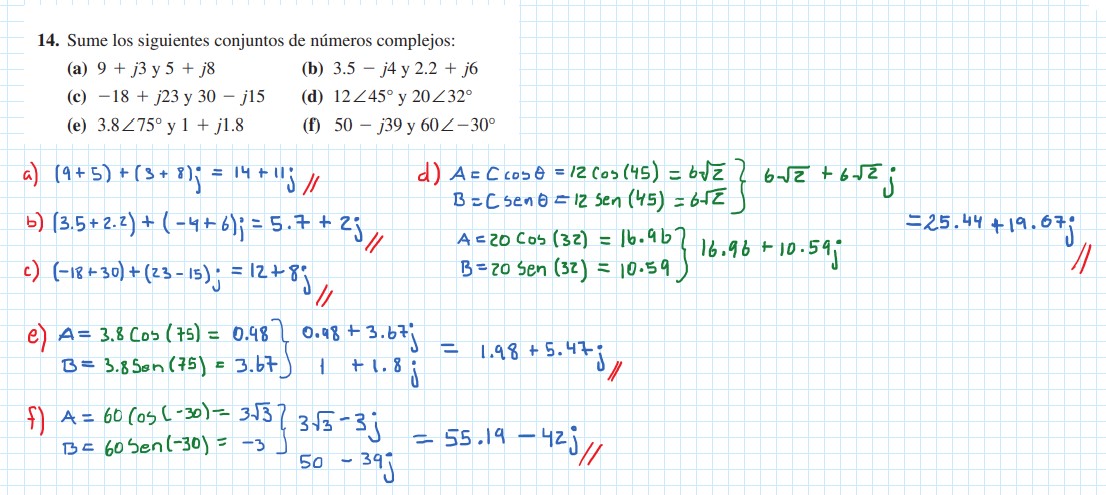 14. Sume los siguientes conjuntos de números complejos:
(a) 9 + j3 y 5 + j8 (b) 3.5 − j4 y 2.2 + j6
(c) −18 + j23 y 30 − j15 (d) 12∠45° y 20∠32°
(e) 3.8∠75° y 1 + j1.8 (f) 50 − j39 y 60∠−30°
a) (9+5) + (3+8)j = 14 + 11j //
b) (3.5+2.2) + (-4+6)j = 5.7 + 2j //
c) (-18+30) + (23-15)j = 12+8j //
d) A = C cosθ = 12 Cos(45) = 6√2 } 6√2 + 6√2 j
B = C senθ = 12 Sen(45) = 6√2
A = 20 Cos(32) = 16.96 } 16.96 + 10.59j
B = 20 Sen(32) = 10.59
= 25.44 + 19.07j //
e) A = 3.8 Cos(75) = 0.98 } 0.98 + 3.67j
B = 3.8 Sen(75) = 3.67 1 + 1.8j
= 1.98 + 5.47j //
f) A = 60 Cos(-30) = 3√3 } 3√3 - 3j
B = 60 Sen(-30) = -3 50 - 39j
= 55.19 - 42j //